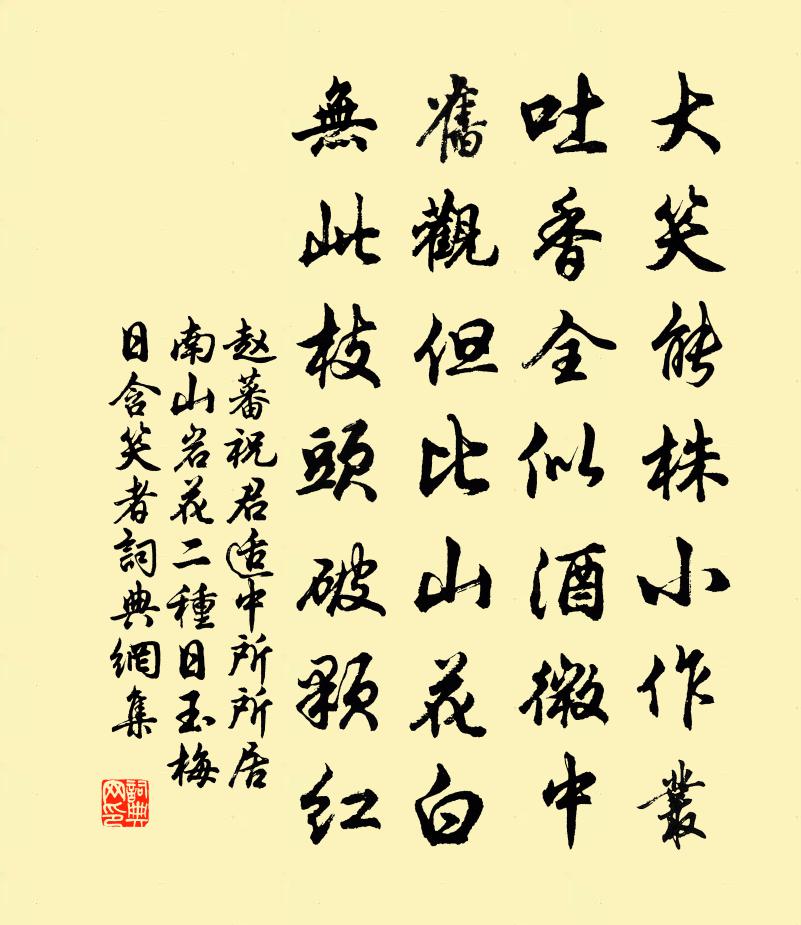 大笑能株小作叢
吐香全似酒微中
舊觀但比山花白
無此枝頭破顆紅
赵蕃祝君适中所所居
南山岩花二種日玉梅
日含笑者詞典網集
詞典网印